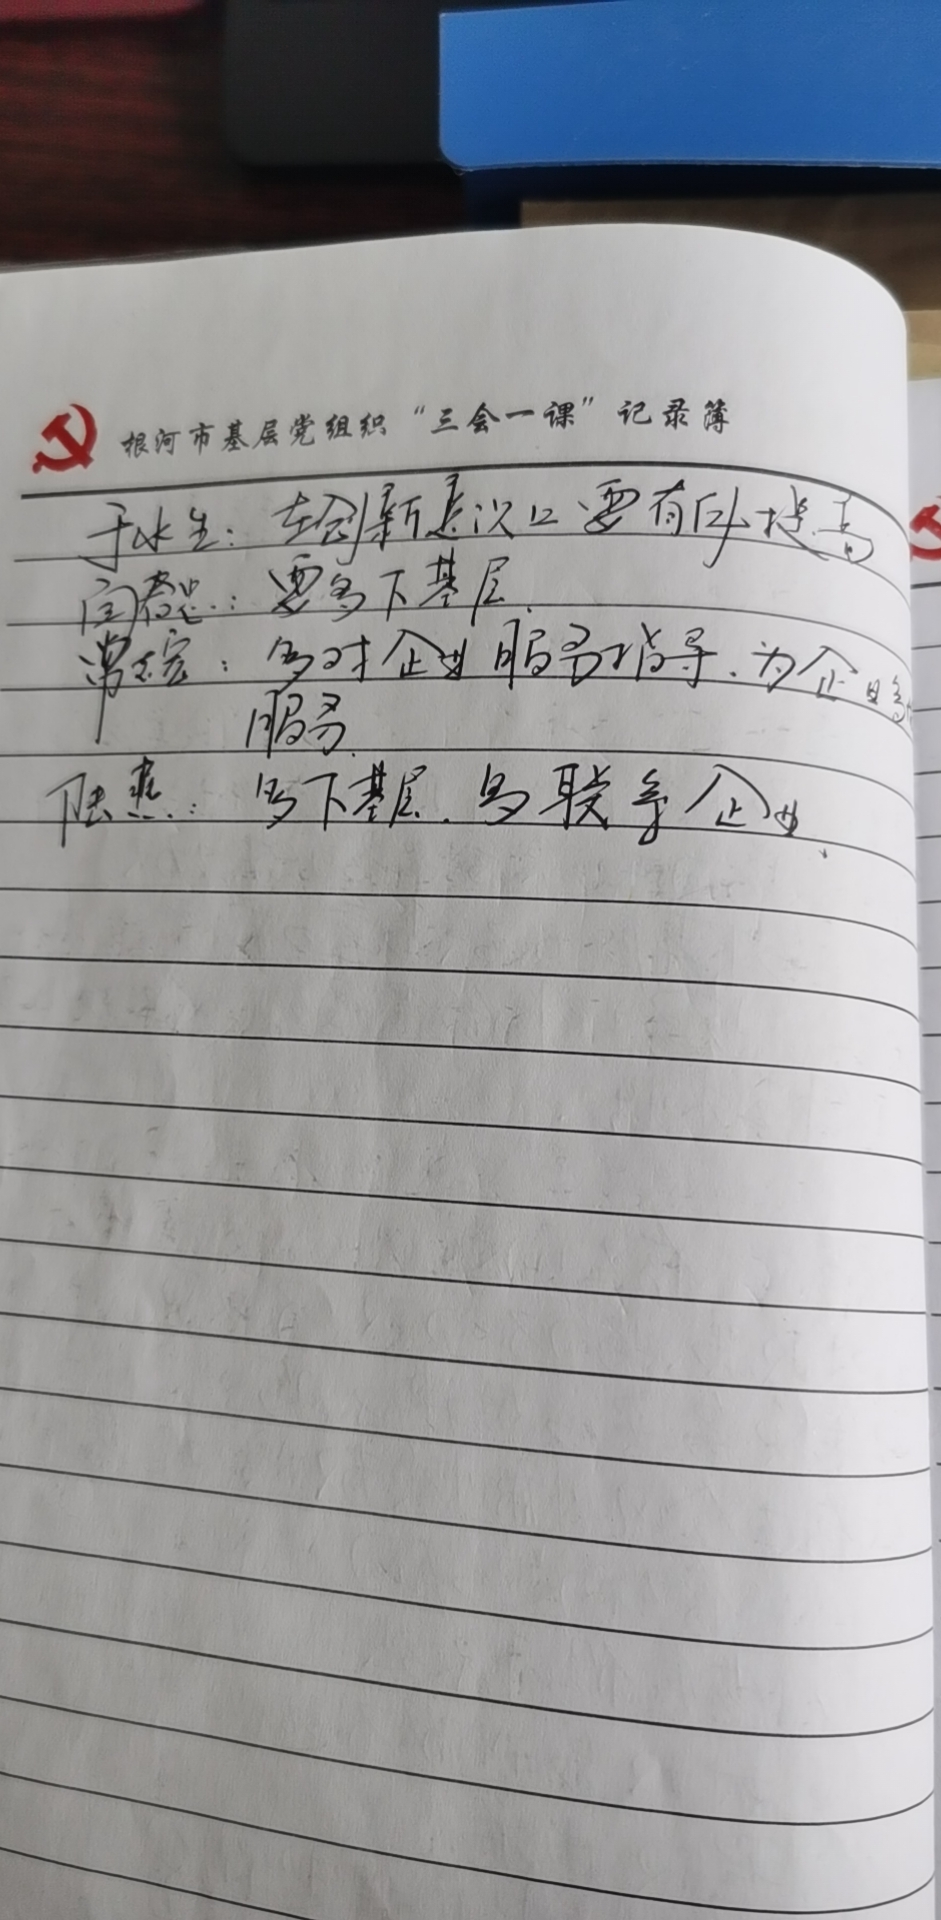 根河市基层党组织“三会一课”记录簿
于水生：在创新意识上要有所提高
要多下基层.
常志宏：多对企业服务指导.为企业多
服务.
陆燕：多下基层.多联系企业.